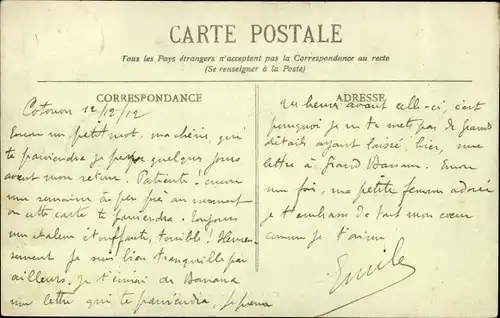 CARTE POSTALE
Tous les Pays étrangers n'acceptent pas la Correspondance au recto
(Se renseigner à la Poste)
CORRESPONDANCE
Cotonou 12/12/12
Encore un petit mot, ma chérie, qui
te parviendra je pense quelques jours
avant mon retour. Patiente encore
une semaine à peu près au moment
où cette carte te parviendra. Toujours
une chaleur étouffante, terrible! Heureu-
sement je suis bien tranquille par
ailleurs, je t'écrirai de Banana
une lettre qui te parviendra,
ADRESSE
heures avant celle-ci, c'est
pourquoi je ne te mets pas de grands
détails ayant laissé, hier, une
lettre à Grand Bassam. Encore
une fois, ma petite femme adorée
je t'embrasse de tout mon coeur
comme je t'aime.
Emile